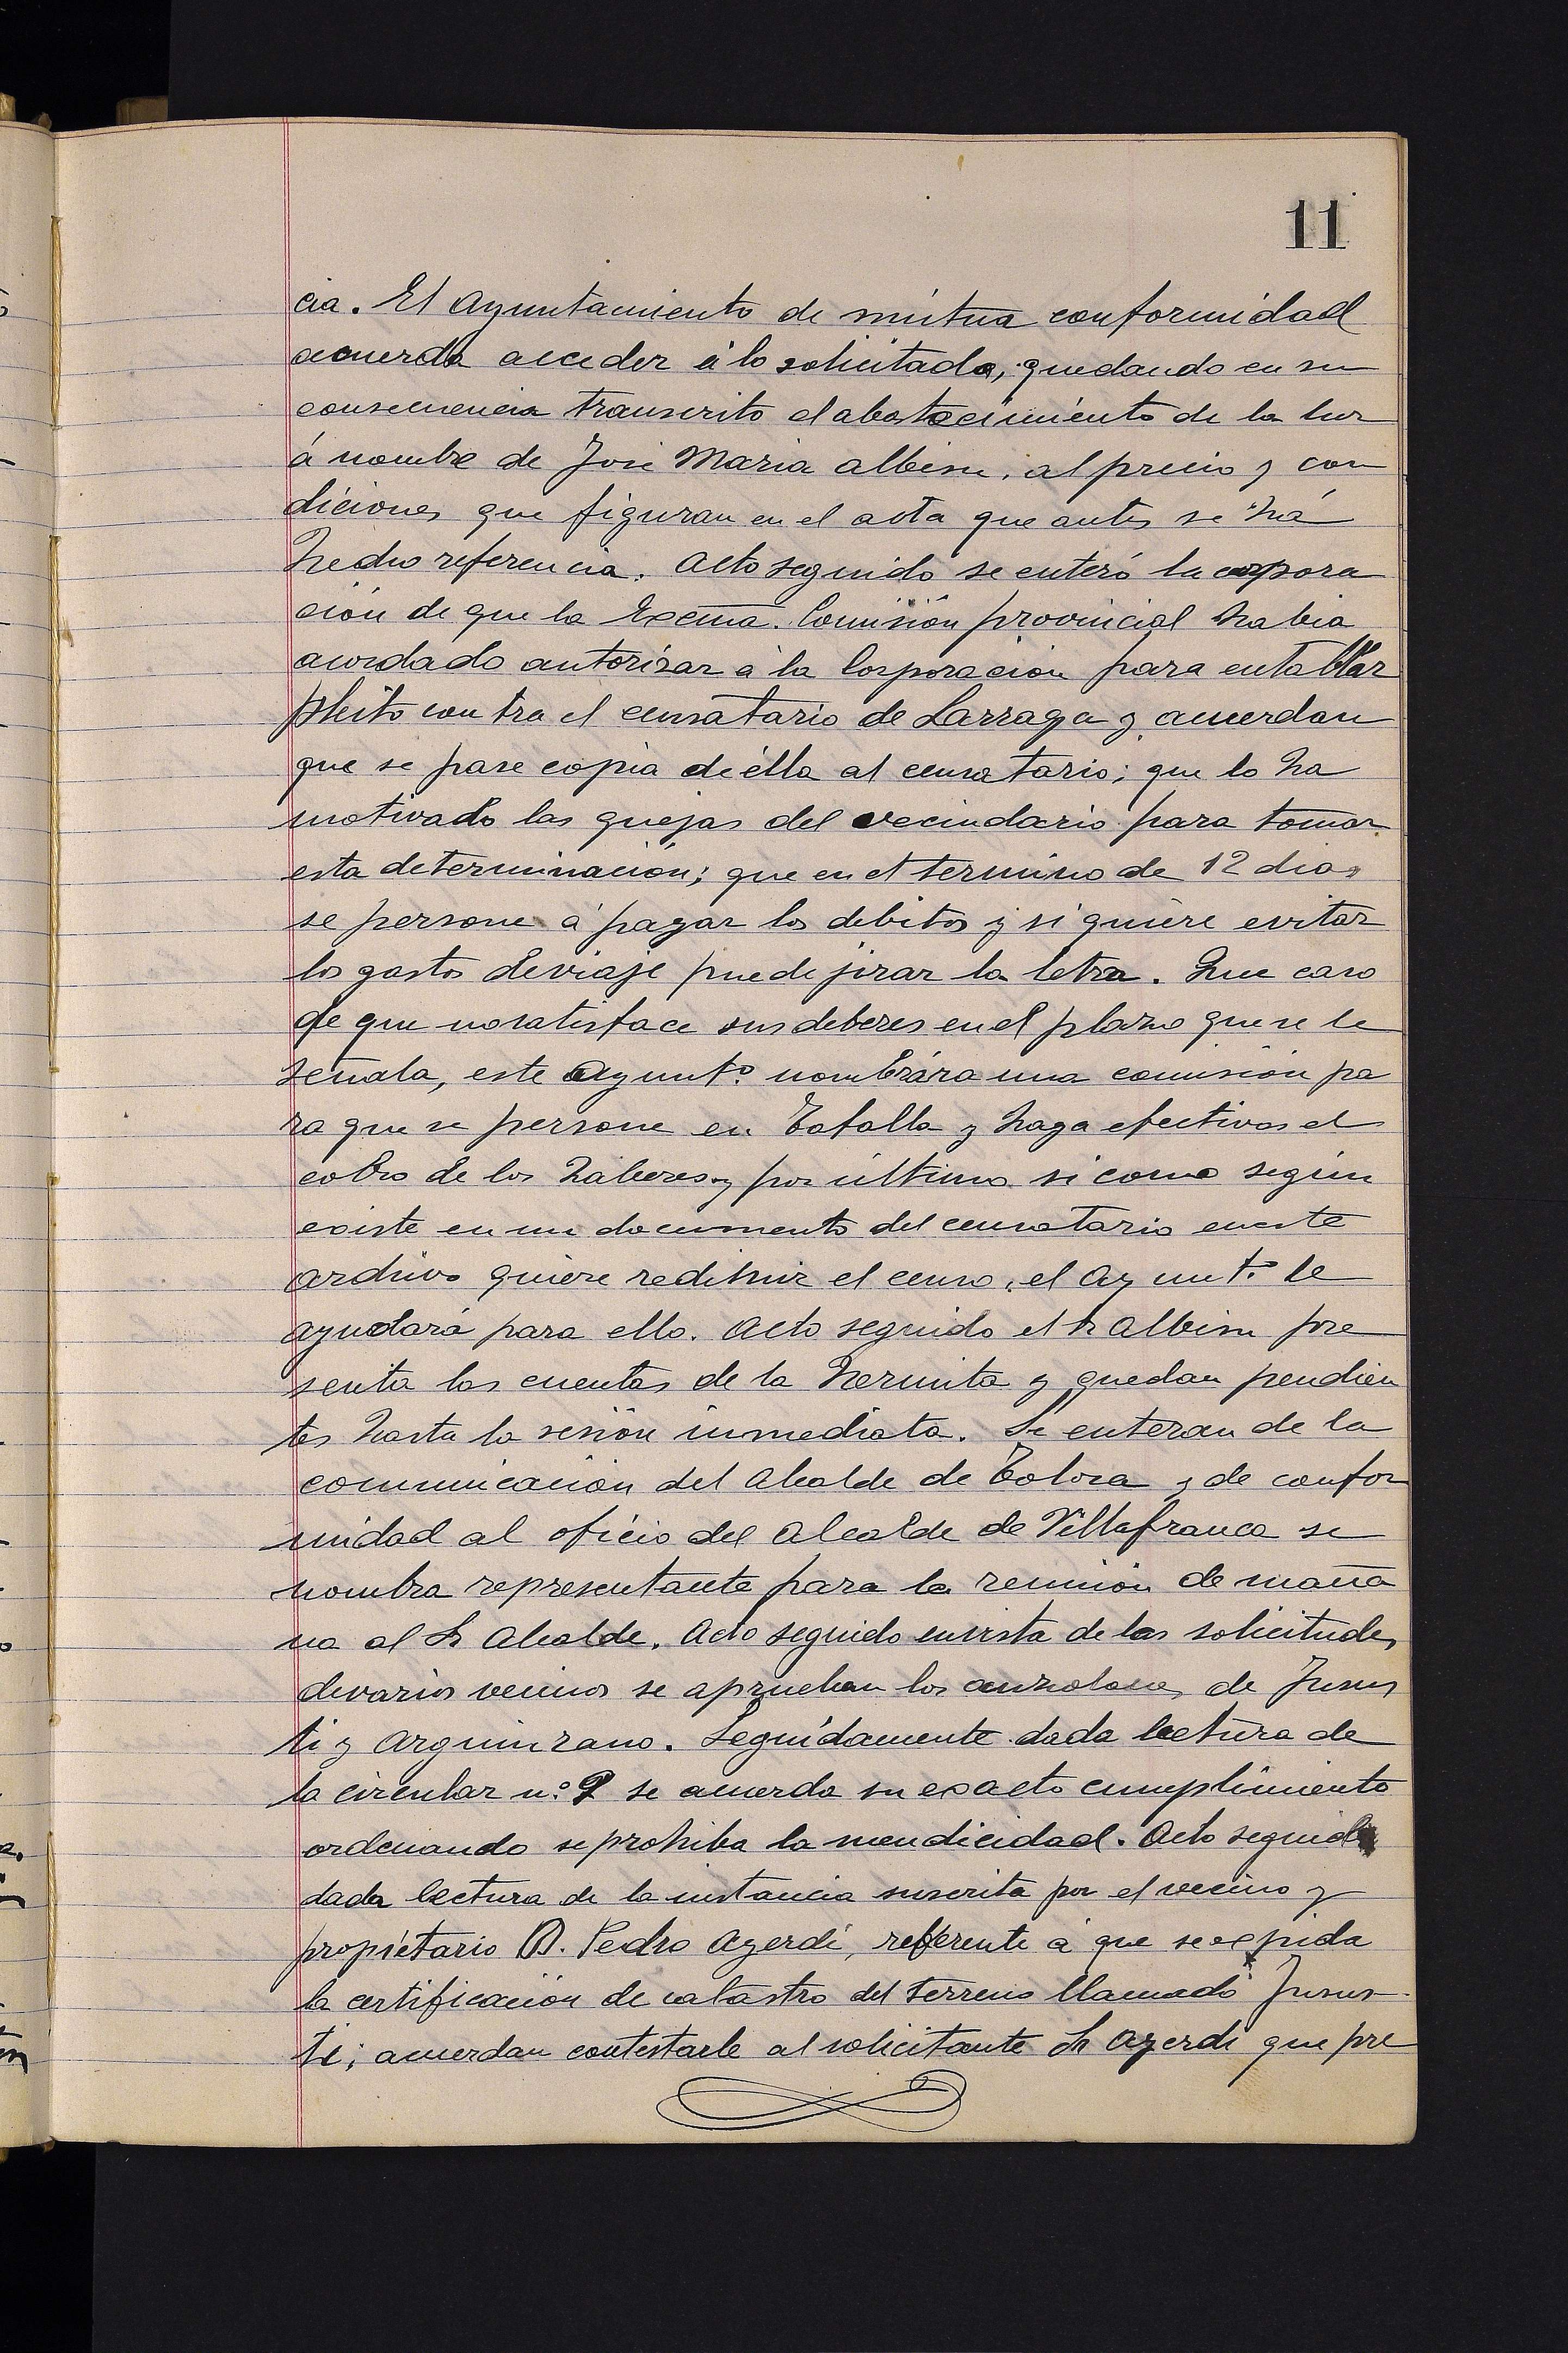 11
cia. El Ayuntamiento de mútua conformidad
acuerda acceder á lo solicitado, quedando en su
consecuencia transcrito el abastecimiento de la luz
á nombre de José Maria Albisu, al precio y con
diciones que figuran en el acta que antes se há
hecho referencia. Acto seguido se enteró la corpora
ción de que la Excma. Comisión provincial habia
acordado autorizar á la Corporación para entablar
pleito contra el censatario de Larraga y acuerdan
que se pase copia de élla al censatario; que lo ha
motivado las quejas del vecindario para tomar
esta determinación; que en el termino de 12 dias
se persone á pagar los debitos y si quiere evitar
los gastos de viaje puede jirar la letra. Que caso
de que no satisface sus deberes en el plazo que se le
señala, este Ayunt.º nombrára una comisión pa
ra que se persone en Tafalla y haga efectivos el
cobro de los haberes y por último si como según
existe en un documento del censatario en este
archivo quiere redimir el censo, el Ayunt.º le
ayudará para ello. Acto seguido el Sr Albisu pre
senta las cuentas de la hermita y quedan pendien
tes hasta la sesión inmediata. Se enteran de la
comunicación del Alcalde de Tolosa y de confor
midad al oficio del Alcalde de Villafranca se
nombra representante para la reunión de maña
na al Sr Alcalde. Acto seguido en vista de las solicitudes
de varios vecinos se aprueban los de Jusus
ti y Arguinzano. Seguidamente dada lectura de
la circular n.º 9 se acuerda su exacto cumplimiento
ordenando se prohiba la mendicidad. Acto seguido
dada lectura de la instancia suscrita por el vecino y
propietario D. Pedro Azerdi, referente á que se expida
la certificación de catastro del terreno llamado Jusus-
ti; acuerdan contestarle al solicitante Sr Azerdi que pre